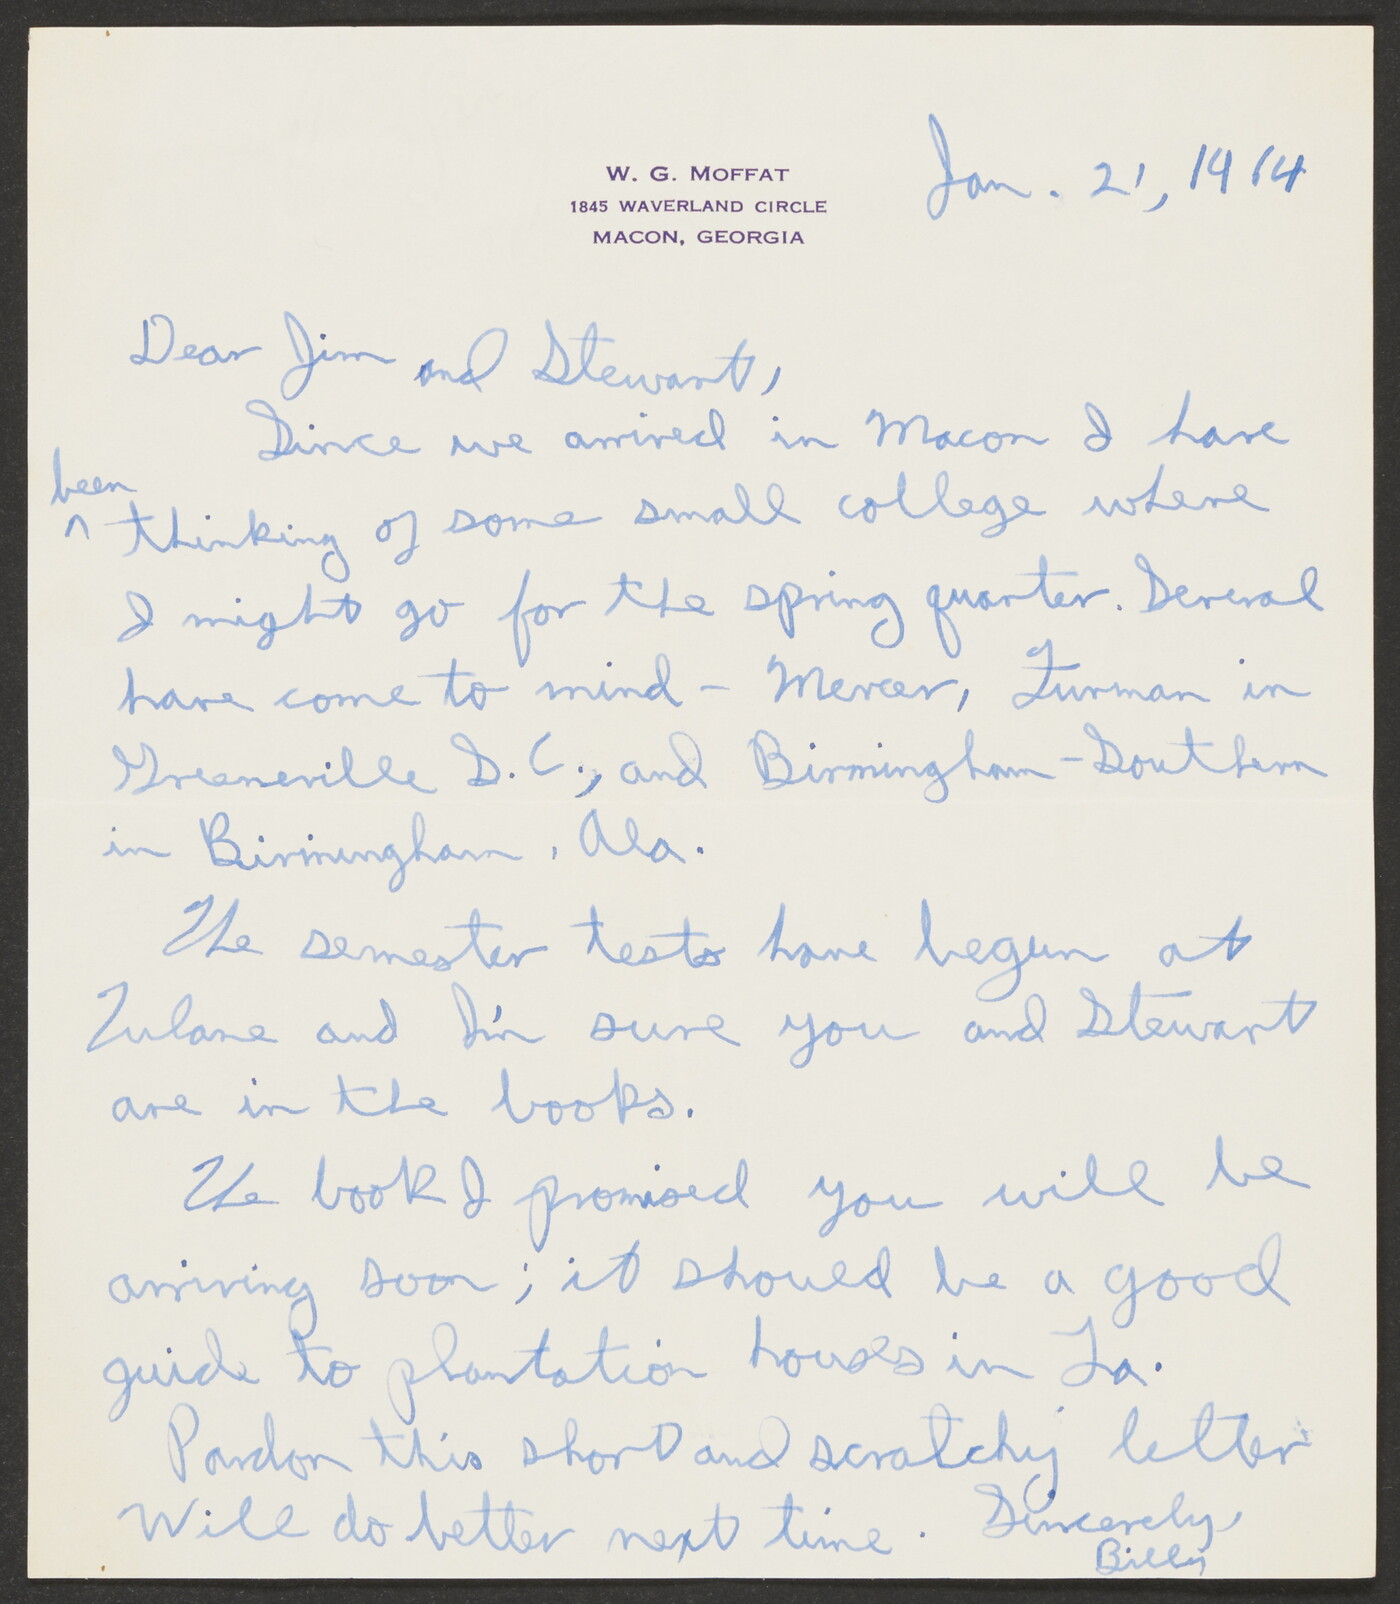 W. G. MOFFAT
1845 WAVERLAND CIRCLE
MACON, GEORGIA
Jan. 21, 1964
Dear Jim and Stewart,
Since we arrived in Macon I have
been
^ thinking of some small college where
I might go for the spring quarter. Several
have come to mind - Mercer, Furman in
Greeneville S.C., and Birmingham-Southern
in Birmingham, Ala.
The semester tests have begun at
Tulane and I'm sure you and Stewart
are in the books.
The book I promised you will be
arriving soon; it should be a good
guide to plantation houses in La.
Pardon this short and scratchy letter
Will do better next time. Sincerely,
Billy